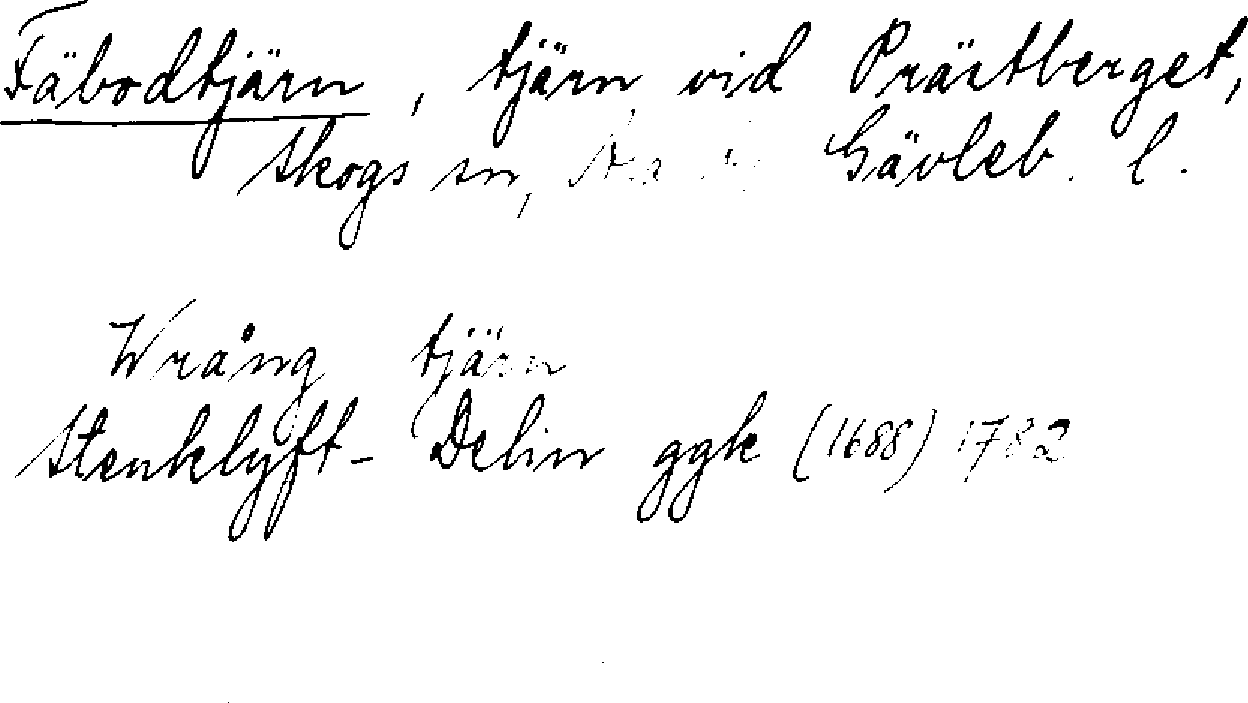 Fäbodtjärn, tjärn vid Prästberget,
Skogs sn, Gävleb. l.
Wrång tjärn
Stenklyft- Delin ggk (1688) 1782